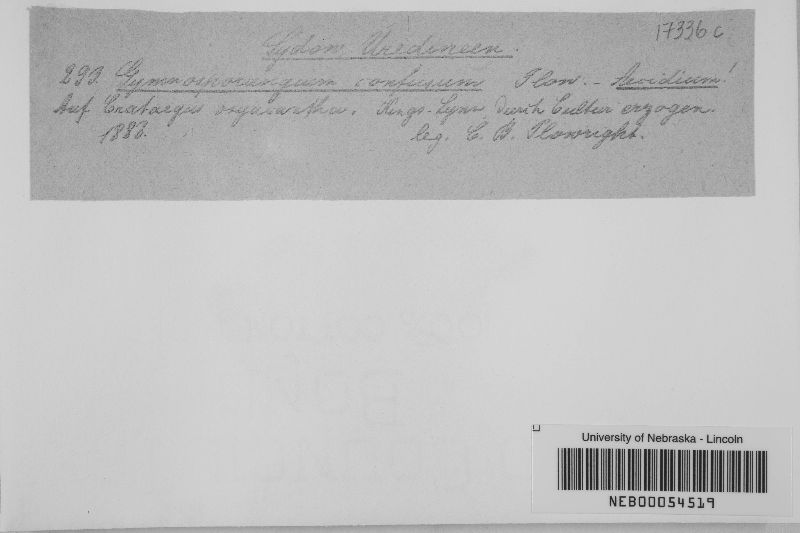 17336c
Sydow. Uredineen.
293. Gymnosporangium confusum Plow. - Aecidium!
Auf Crataegus oxyacantha. Kings-Lynn durch Cultur erzogen.
1883. leg. C. B. Plowright.
University of Nebraska - Lincoln
NEB00054519